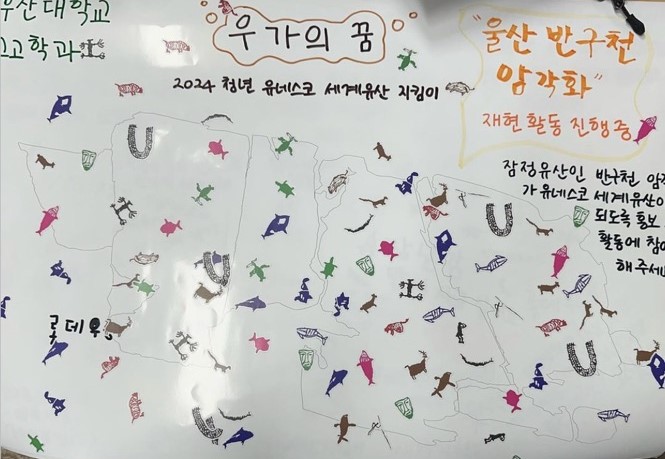 우산대학교
고고학과
우가의 꿈
2024 청년 유네스코 세계유산 지킴이
"울산 반구천
암각화"
재현 활동 진행 중
잠정유산인 반구천 암각
가 유네스코 세계유산이
되도록 홍보
활동에 참여
해 주세요